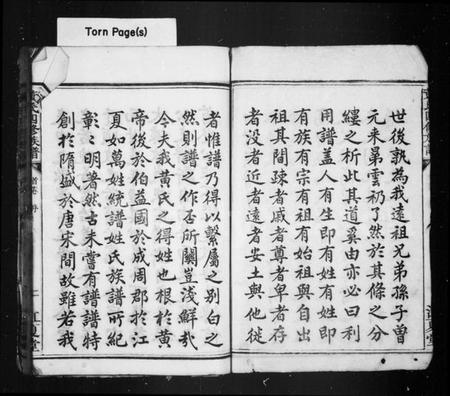 Torn Page(s)
世後孰為我遠祖兄弟孫子曽
元来昴雲礽了然於其條之分
縷之析此其道奚由亦必曰利
用譜盖人有生即有姓有姓即
有族有宗有祖有始祖與自出
祖其間疎者戚者尊者卑者存
者没者近者遠者安土與他徙
者惟譜乃得以繫屬之别白之
然則譜之作否所關豈浅鮮哉
今夫我黄氏之得姓也根於黄
帝後於伯益國於成周郡於江
夏如萬姓統譜姓氏族譜所紀
彰彰明著然古未嘗有譜譜特
創於隋盛於唐宋間故雖若我
江夏堂